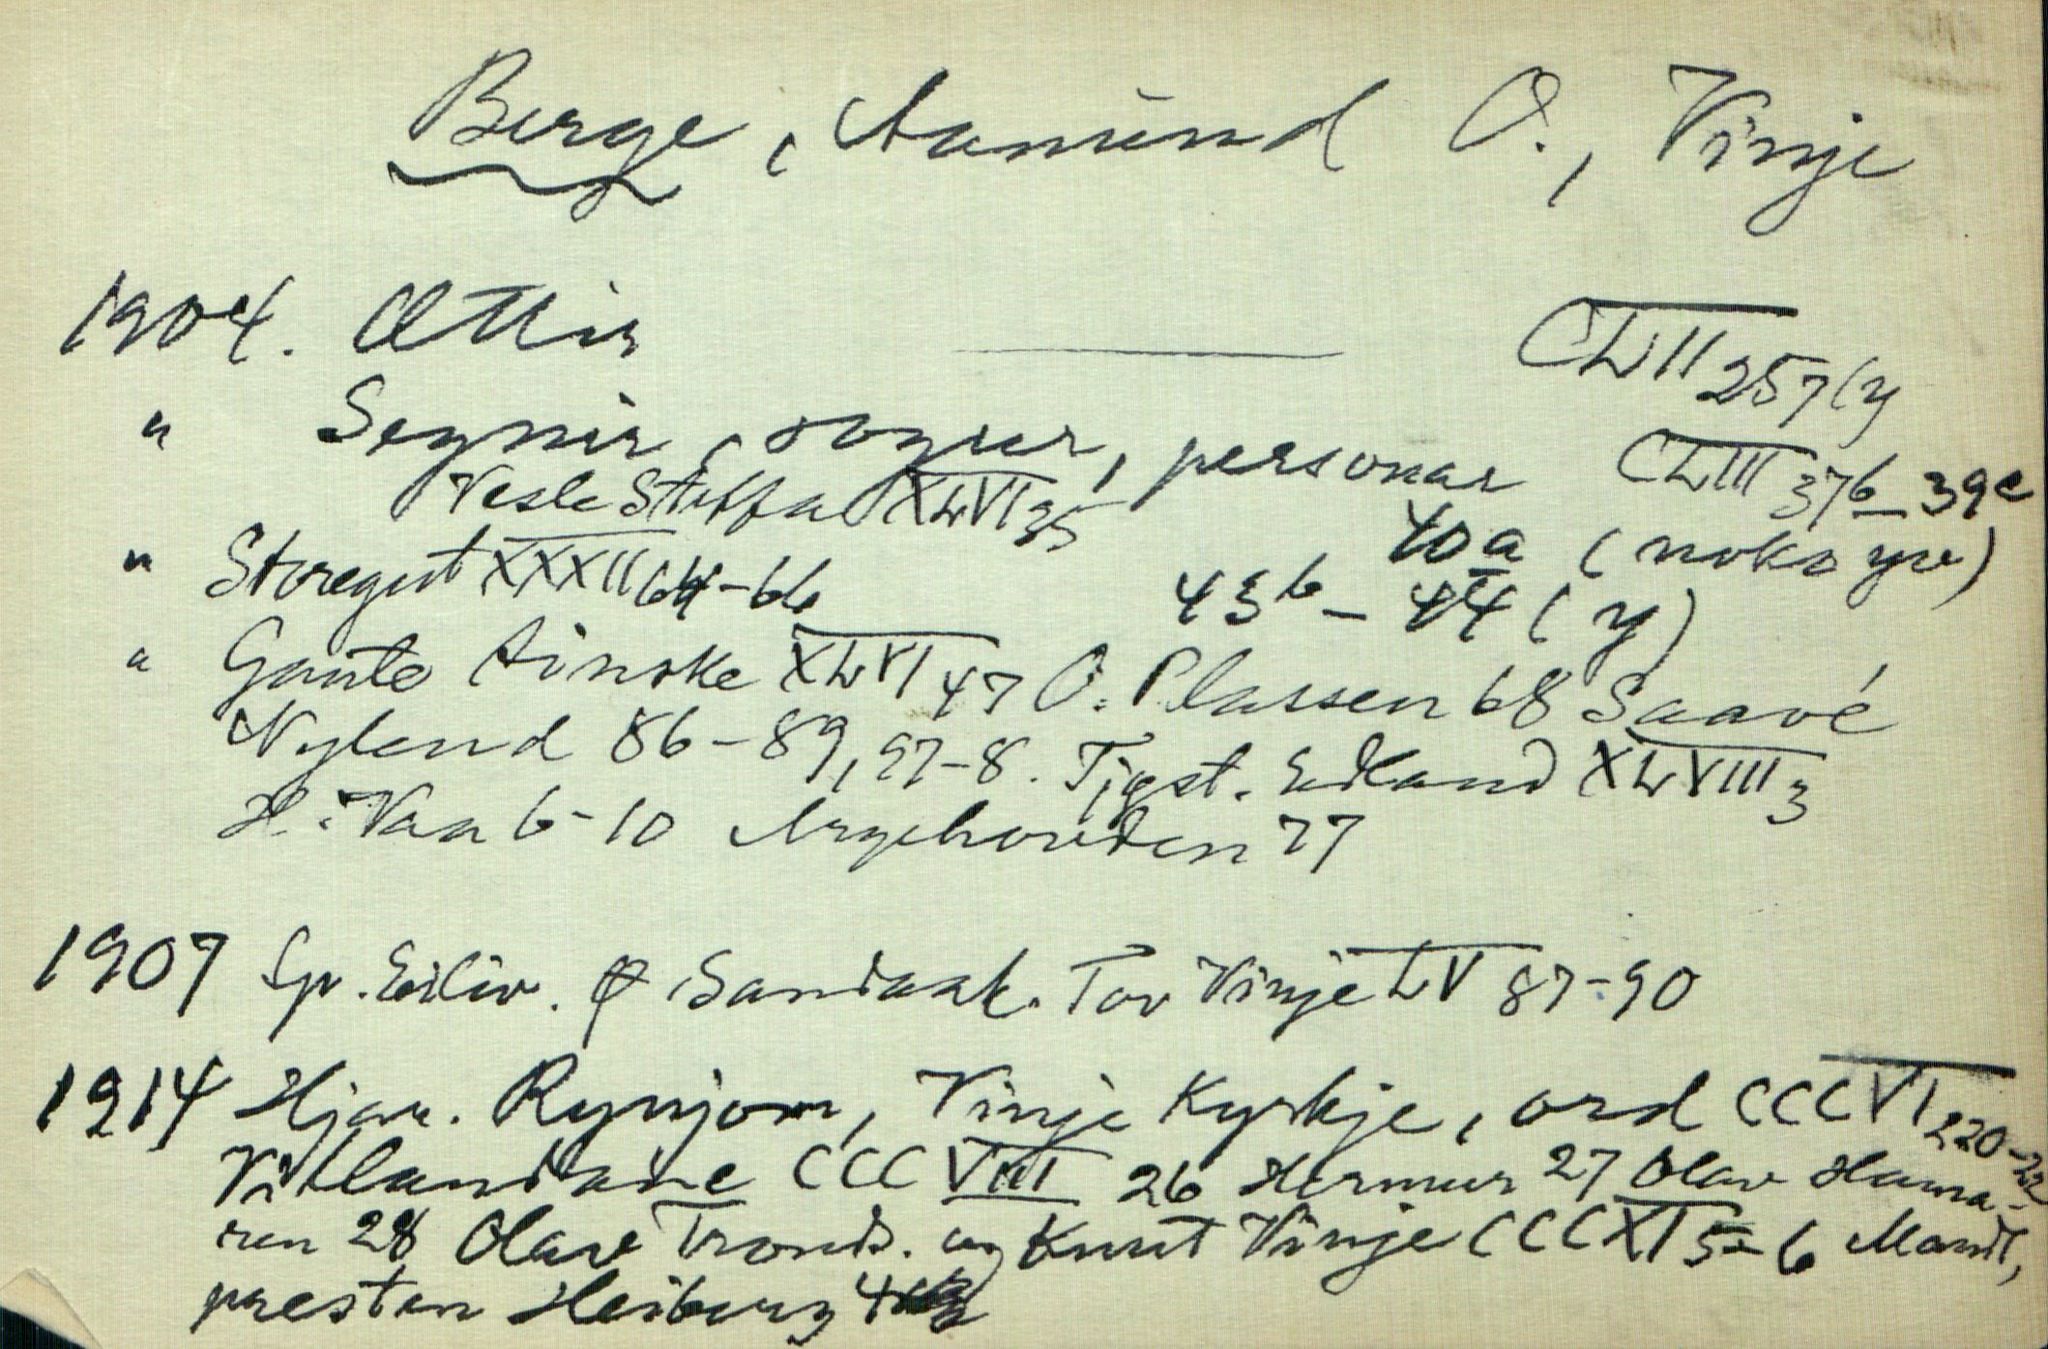 Berge, Aamund O., Vinje
1904. Ættir CLII 257 (y
" Segnir, sogur, personar CLIII 37b-39c
Vesle Steffa XLVI 35 40a (noko yve)
" Storegut XXXII 64-66 43b-44 (y)
" Gaute Airoske XLVI 47 O. Plassen 68 Saave
Nyland 86-89, 97-8. Tjgst. Edland XLVIII 3
H. Vaa 6-10 Argehovden 77
1907 Sp. Eiliv. Ø Sandaak. Tov Vinje LV 87-90
1914 Hjar. Rynjom, Vinje Kyrkje, ord CCCVI 220-22
Vitlandane CCCVIII 26 Hermur 27 Olav Hama-
ren 28 Olav Trond. og Knut Vinje CCCXI 5-6 Mandt,
presten Heiberg